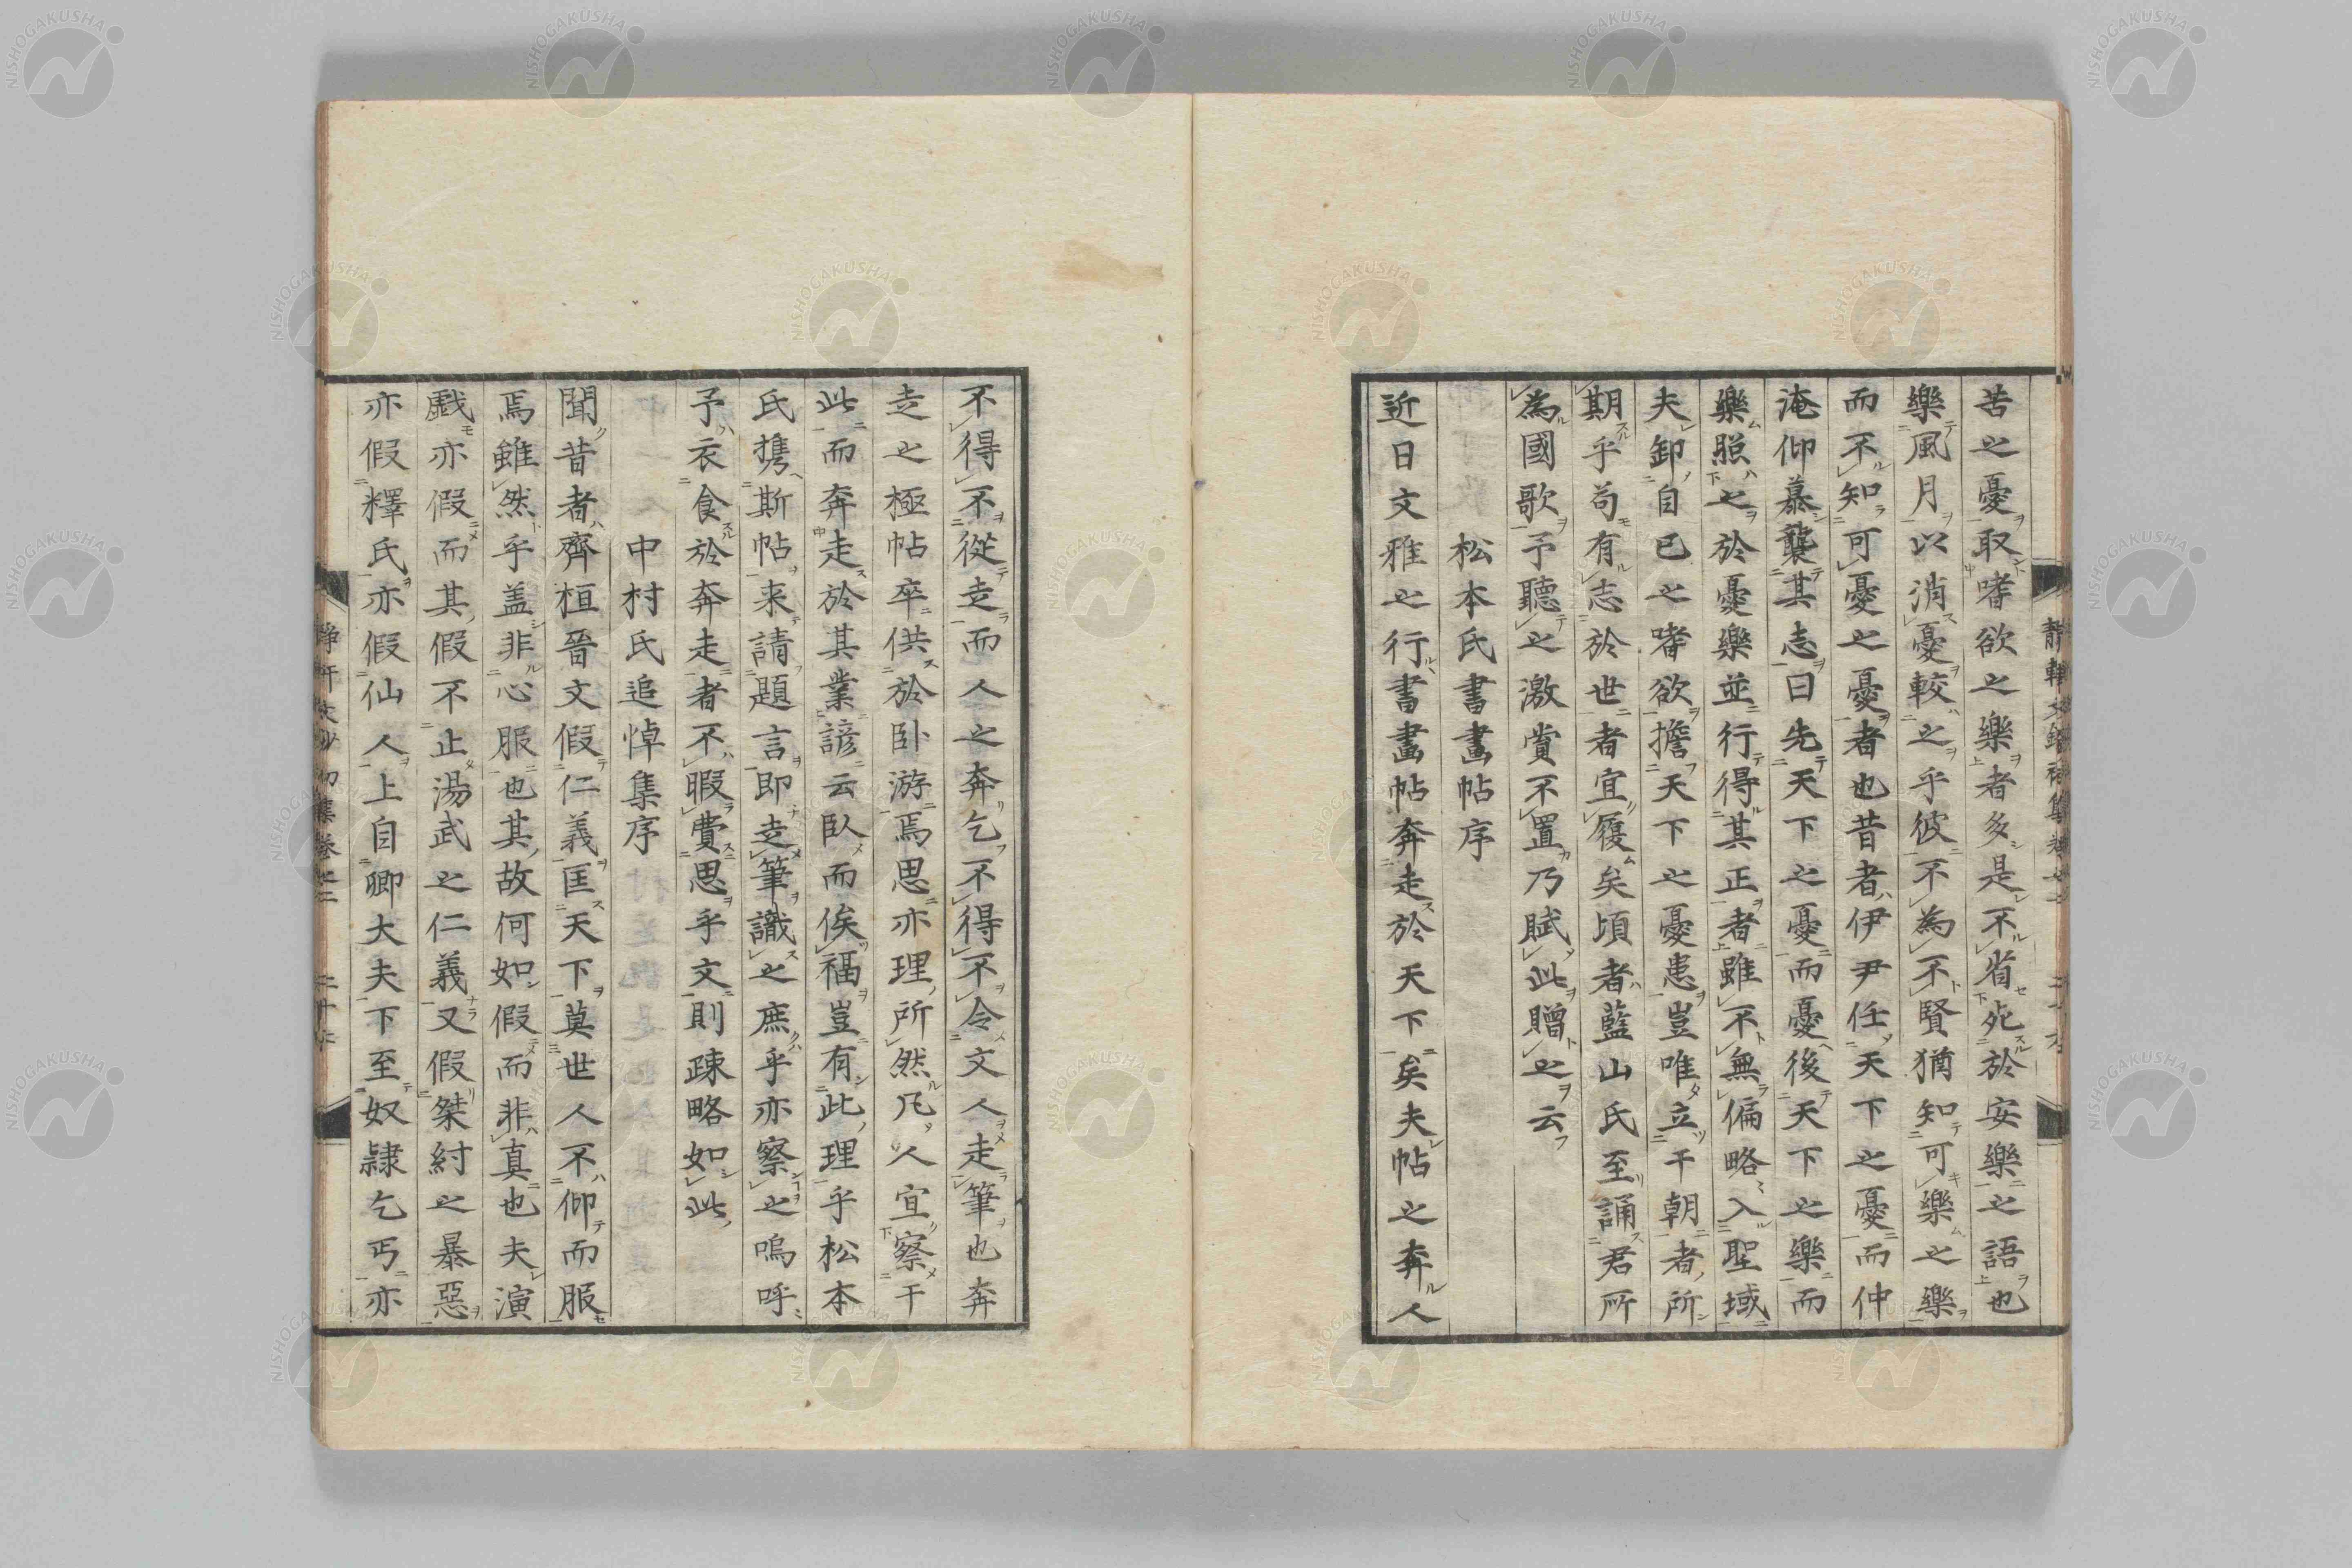 苦之憂取嗜欲之樂者多是不省死於安樂之語也
樂風月以消憂較之乎彼不為不賢猶知可樂之樂
而不知可憂之憂者也昔者伊尹任天下之憂而仲
淹仰慕襲其志曰先天下之憂而憂後天下之樂而
樂照之於憂樂並行得其正者雖不無偏略入聖域
夫卸自已之嗜欲擔天下之憂患豈唯立干朝者所
期乎苟有志於世者宜履矣頃者藍山氏至誦君所
為國歌予聽之激賞不置乃賦此贈之云
松本氏書畫帖序
近日文雅之行書畫帖奔走於天下矣夫帖之奔人
不得不從走而人之奔乞不得不令文人走筆也奔
走之極帖卒供於卧游焉思亦理所然凡人宜察干
此而奔走於其業諺云臥而俟福豈有此理乎松本
氏携斯帖来請題言即走筆識之庶乎亦察之嗚呼
予衣食於奔走者不暇費思乎文則疎略如此
中村氏追悼集序
聞昔者齊桓晉文假仁義匡天下莫世人不仰而服
焉雖然乎盖非心服也其故何如假而非真也夫演
戲亦假而其假不止湯武之仁義又假桀紂之暴惡
亦假釋氏亦假仙人上自卿大夫下至奴隷乞丐亦